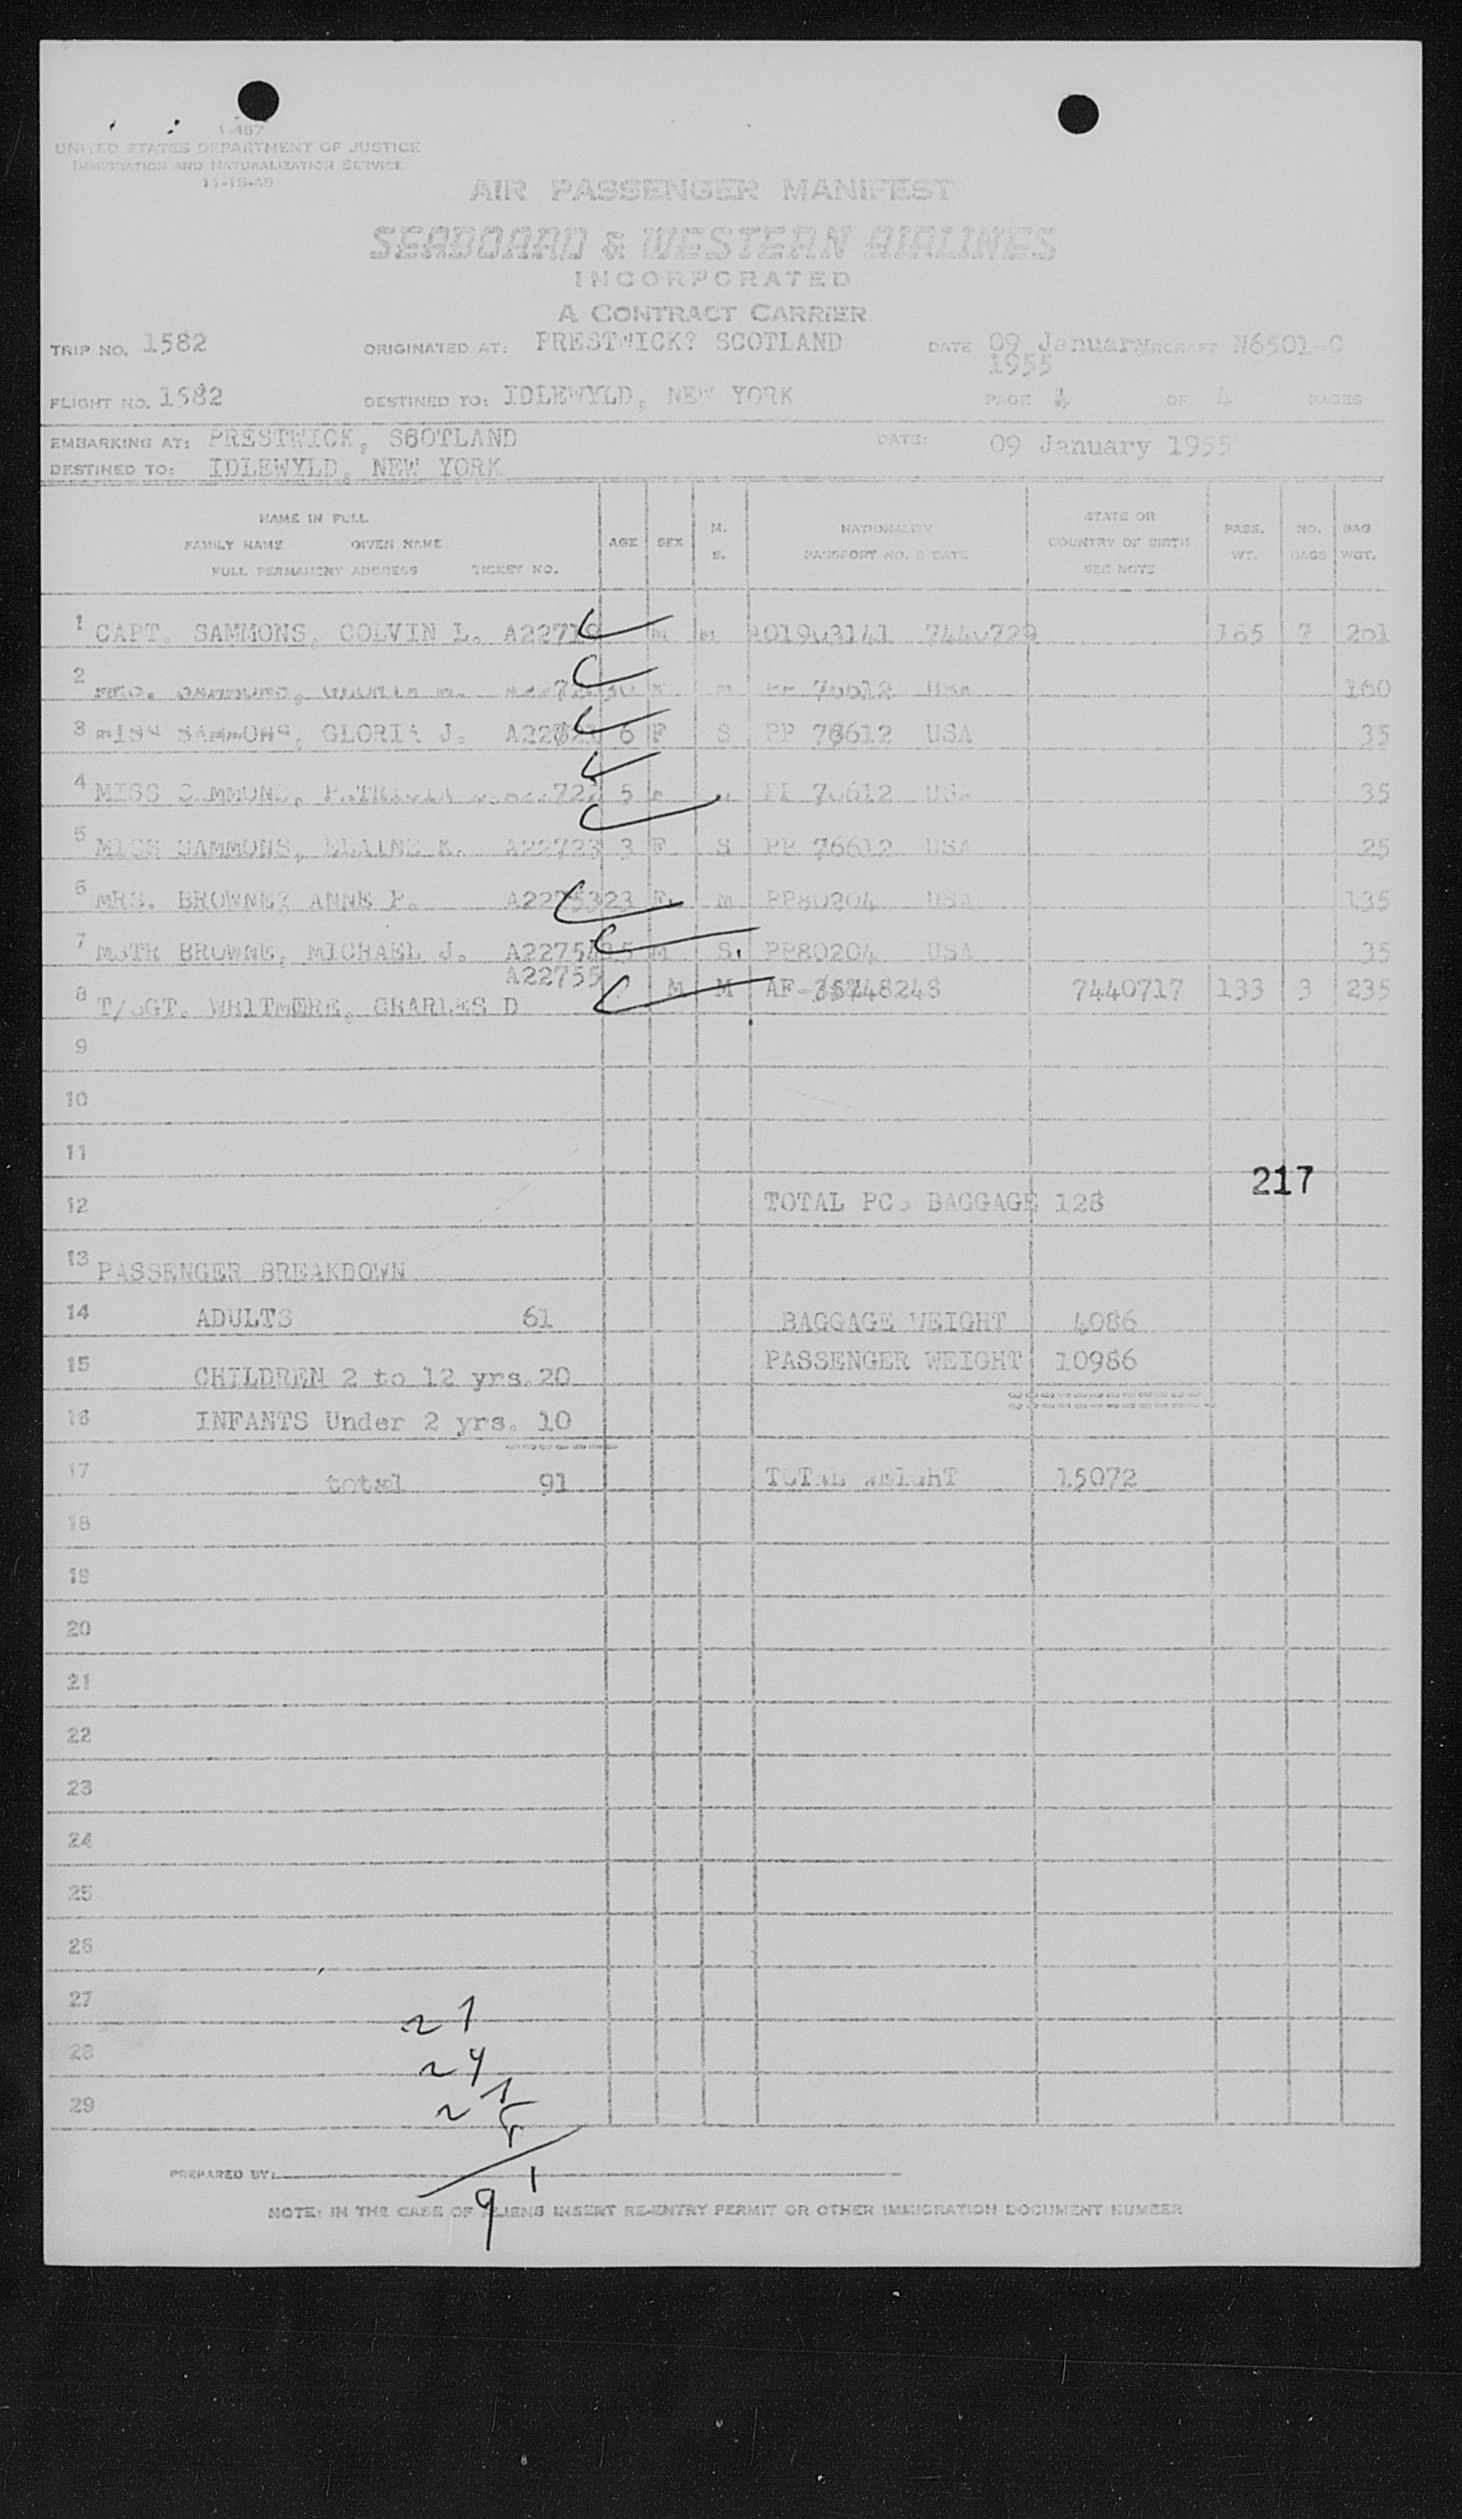 1-487
UNITED STATES DEPARTMENT OF JUSTICE
IMMIGRATION AND NATURALIZATION SERVICE
11-18-48
AIR PASSENGER MANIFEST
SEABOARD & WESTERN AIRLINES
INCORPORATED
A CONTRACT CARRIER
TRIP NO. 1582 ORIGINATED AT: PRESTWICK? SCOTLAND DATE 09 January 1955 AIRCRAFT N6501-C
FLIGHT NO. 1582 DESTINED TO: IDLEWYLD, NEW YORK PAGE 4 OF 4 PAGES
EMBARKING AT: PRESTWICK, SCOTLAND DATE: 09 January 1955
DESTINED TO: IDLEWYLD, NEW YORK
NAME IN FULL
FAMILY NAME GIVEN NAME
FULL PERMANENT ADDRESS TICKET NO.
AGE SEX M. S.
NATIONALITY
PASSPORT NO. & DATE
STATE OR
COUNTRY OF BIRTH
SEE NOTE
PASS. WT. NO. BAGS BAG WGT.
1 CAPT. SAMMONS, COLVIN L. M M 165 7 201
2 30 76612 USA 160
3 MISS SAMMONS, GLORIA J. 6 F S PP 76612 USA 35
4 MISS SAMMONS, PATRICIA 722 5 PP 76612 USA 35
5 MISS SAMMONS, ELAINE K. A22723 3 F S PP 76612 USA 25
6 MRS. BROWNE, ANNE P. A22753 23 F M PP80204 USA 135
7 MSTR BROWNE, MICHAEL J. A22754 M S. PP80204 USA 35
8 T/SGT. WHITMIRE, CHARLES D A22755 M M 7440717 133 3 235
9
10
11
217
12 TOTAL PCS BAGGAGE 128
13 PASSENGER BREAKDOWN
14 ADULTS 61 BAGGAGE WEIGHT 4086
15 CHILDREN 2 to 12 yrs. 20 PASSENGER WEIGHT 10986
16 INFANTS Under 2 yrs. 10
17 total 91 TOTAL WEIGHT 15072
18
19
20
21
22
23
24
25
26
27
28
29
24
91
PREPARED BY:
NOTE: IN THE CASE OF ALIENS INSERT RE-ENTRY PERMIT OR OTHER IMMIGRATION DOCUMENT NUMBER